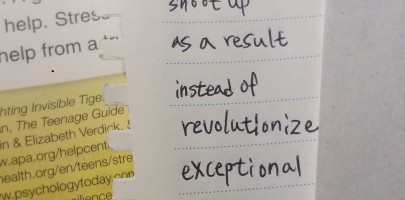 help. Stres
help from a
hting Invisible Tige
n, The Teenage Guide
in & Elizabeth Verdick.
w.apa.org/helpcent
health.org/en/teens/stre
w.psychologytoday.con
silience
shoot up
as a result
instead of
revolutionize
exceptional